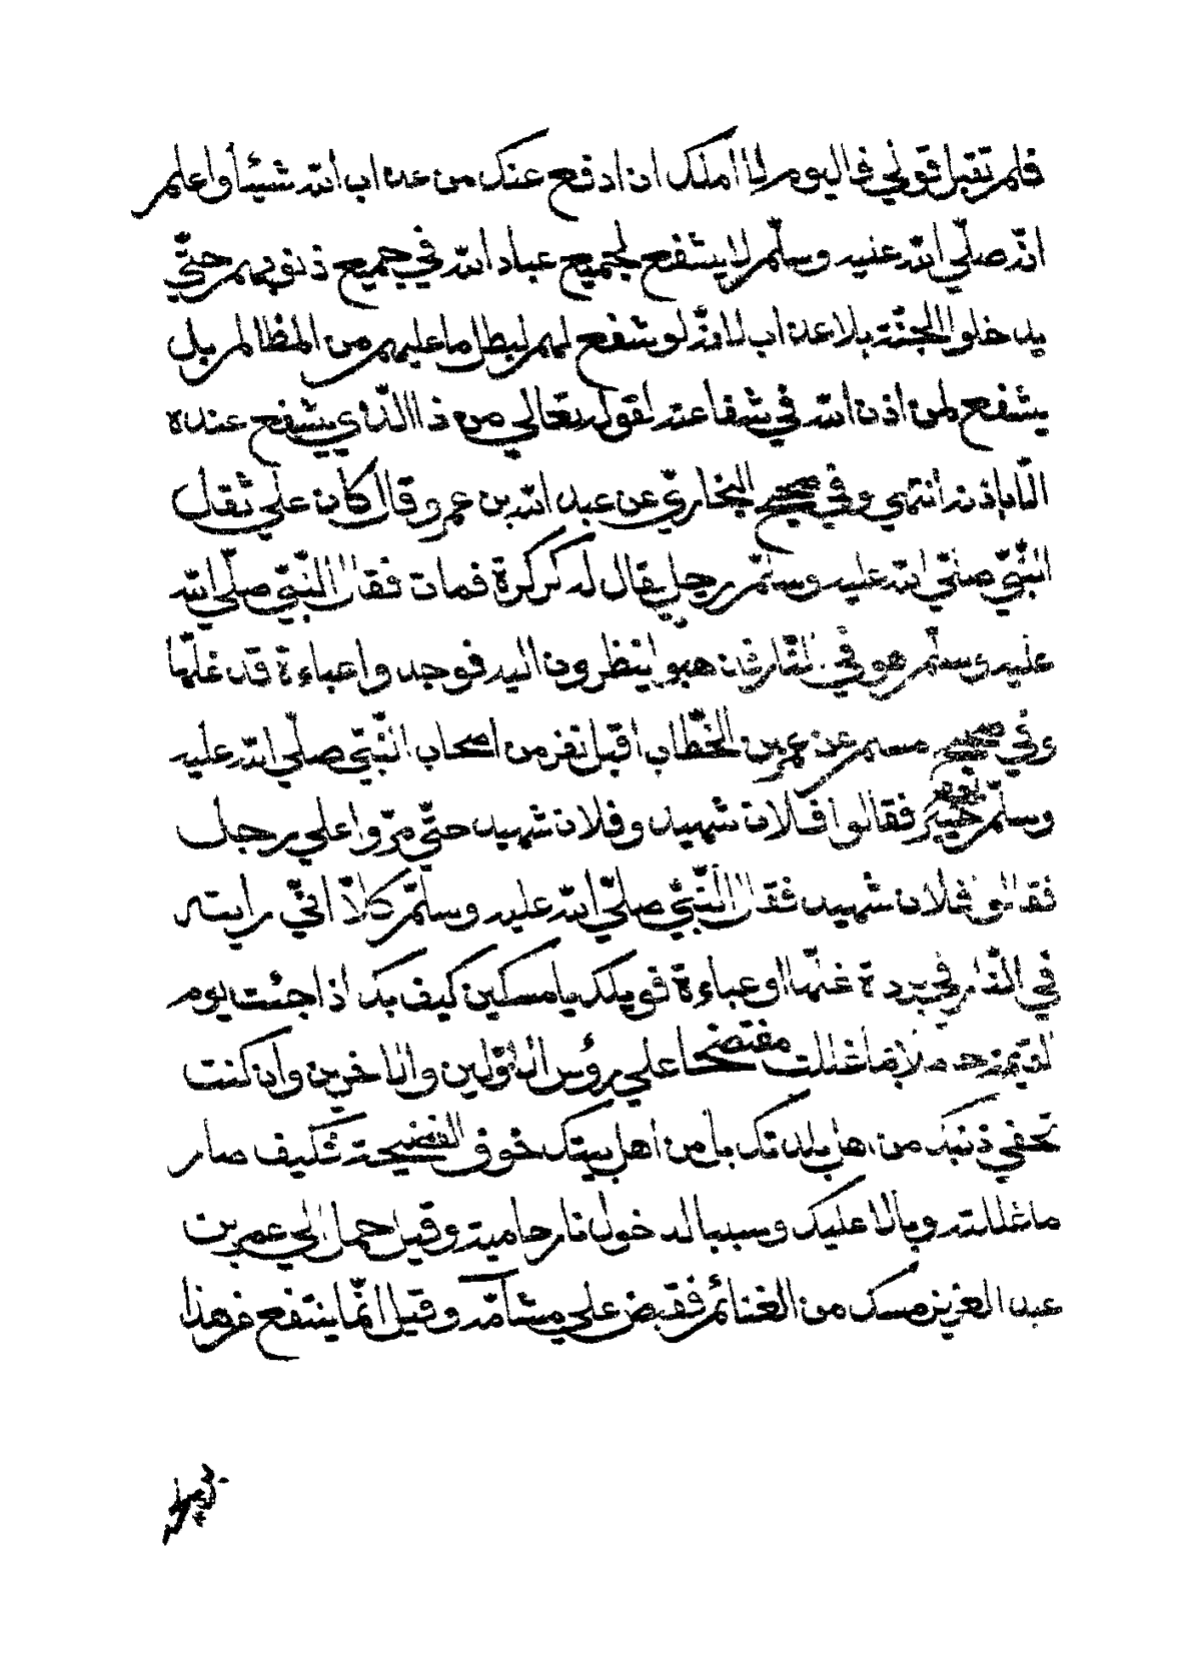 فلم تقبل قولي فاليوم لا املك ان ادفع عنك من عذاب الله شيئا واعلم
انه صلّي الله عليه وسلّم لا يشفع لجميع عباد الله في جميع ذنوبهم حتّي
يدخلوا الجنّة بلا عذاب لانه لو شفع لهم لبطل ما عليهم من المظالم بل
يشفع لمن اذن الله في شفاعته لقوله تعالي من ذا الّذي يشفع عنده
الّا باذنه انتهي وفي صحيح البخاريّ عن عبد الله بن عمرو قال كان علي ثقل
النّبيّ صلّي الله عليه وسلّم رجل يقال له كركرة فمات فقال النّبيّ صلّي الله
عليه وسلّم هو في النّار فذهبوا ينظرون اليه فوجدوا عباءة قد غلّها
وفي صحيح مسلم عن عمر بن الخطّاب اقبل نفر من اصحاب النّبيّ صلّي الله عليه
وسلّم يوم خيبر فقالوا فلان شهيد وفلان شهيد حتّي مرّوا علي رجل
فقالوا فلان شهيد فقال النّبيّ صلّي الله عليه وسلّم كلّا انّي رايته
في النّار في بردة غلّها او عباءة فويلك يا مسكين كيف بك اذا جئت يوم
القيمة حاملا بما غللت مفتضحا علي رؤس الاوّلين والاخرين وان كنت
تخفي ذنبك من اهل بلدتك بل من اهل بيتك خوف الفضيحة فكيف صار
ما غللته وبالا عليك وسببا لدخول نار حامية وقيل حمل الي عمر بن
عبد العزيز مسك من الغنائم فقبض علي مشامّه وقيل انّما ينتفع من هذا